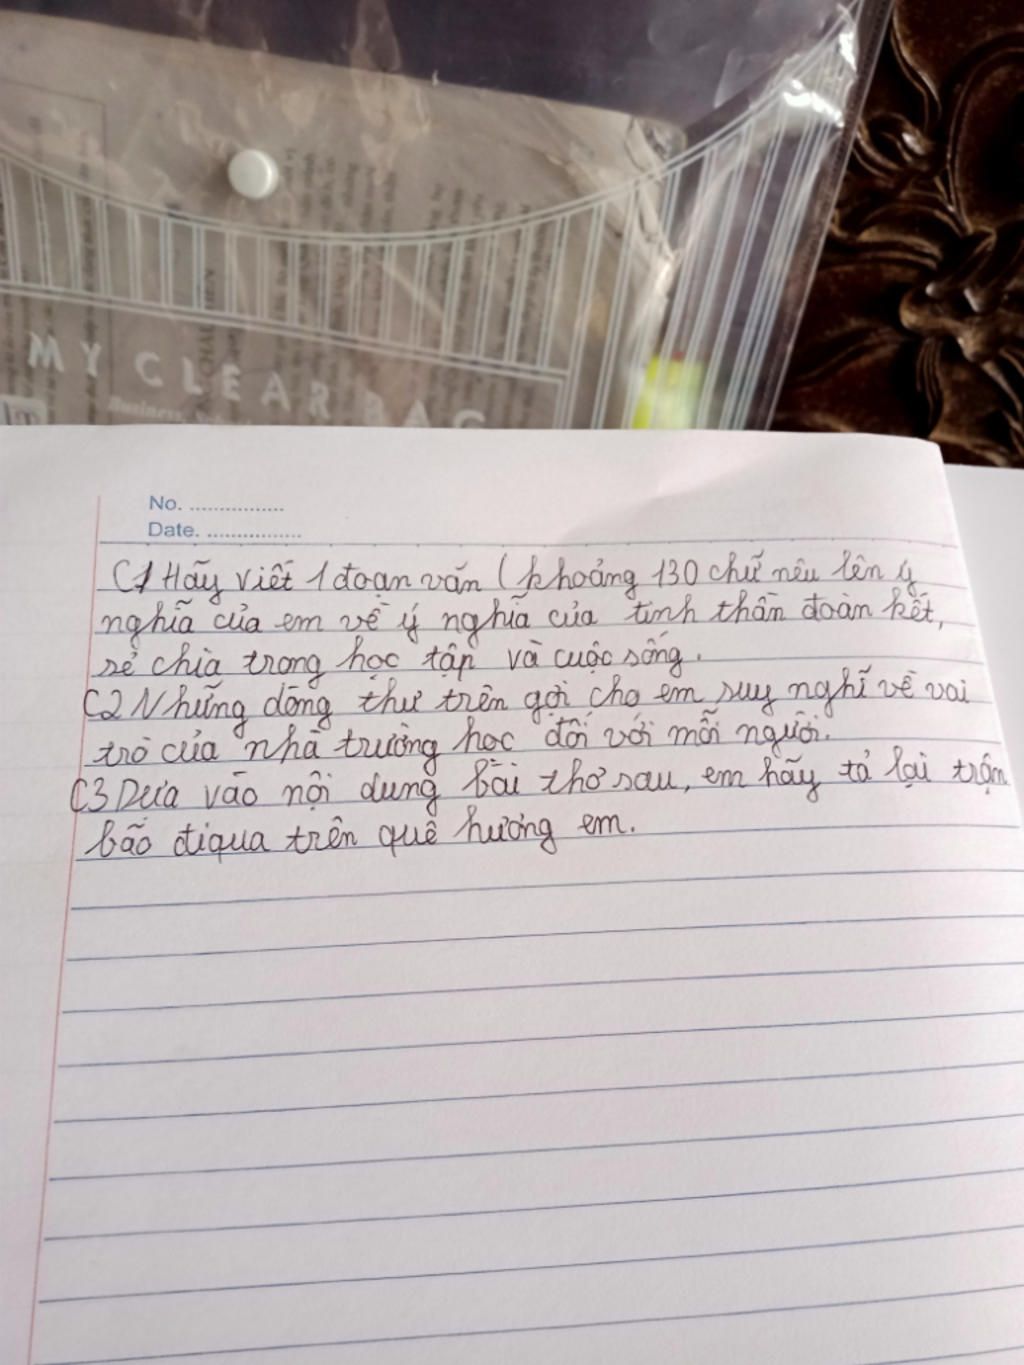 MY CLEAR BAG
No. ................
Date. ................
C1 Hãy viết 1 đoạn văn (khoảng 130 chữ nêu lên ý
nghĩa của em về ý nghĩa của tinh thần đoàn kết,
sẻ chia trong học tập và cuộc sống.
C2 Những dòng thư trên gợi cho em suy nghĩ về vai
trò của nhà trường học đối với mỗi người.
C3 Dựa vào nội dung bài thơ sau, em hãy tả lại trận
bão đi qua trên quê hương em.